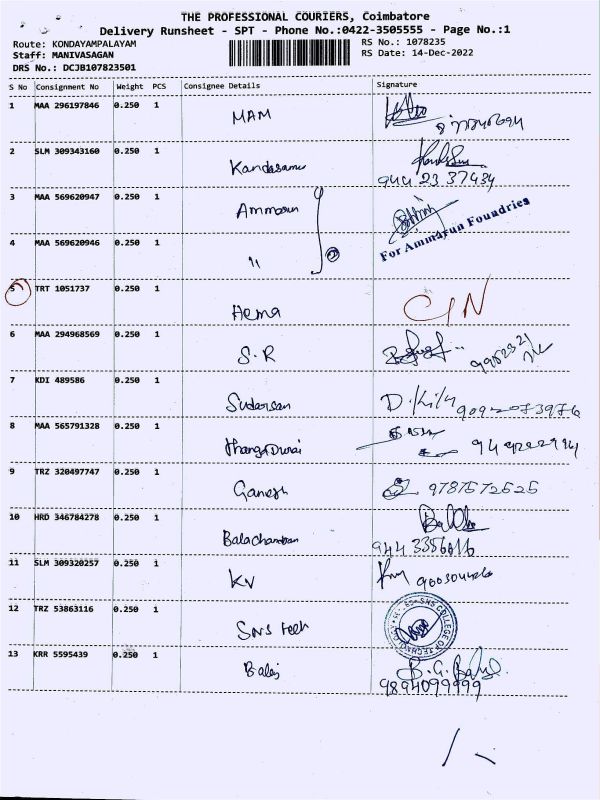 THE PROFESSIONAL COURIERS, Coimbatore
Delivery Runsheet - SPT - Phone No.:0422-3505555 - Page No.:1
Route: KONDAYAMPALAYAM
Staff: MANIVASAGAN
DRS No.: DCJB107823501
RS No.: 1078235
RS Date: 14-Dec-2022
S No Consignment No Weight PCS Consignee Details Signature
1 MAA 296197846 0.250 1 MAM
2 SLM 309343160 0.250 1 Kandasamy
944 23 37434
3 MAA 569620947 0.250 1 Ammarun
For Ammarun Foundries
4 MAA 569620946 0.250 1 "
5 TRT 1051737 0.250 1 Hema
6 MAA 294968569 0.250 1 S.R
7 KDI 489586 0.250 1 Sudarsan
8 MAA 565791328 0.250 1 ThangaDurai
9 TRZ 320497747 0.250 1 Ganesh 9787572525
10 HRD 346784278 0.250 1 Balachandran
11 SLM 309320257 0.250 1 KV
12 TRZ 53863116 0.250 1 SNS Tech
SNS COLLEGE OF TECHNOLOGY
13 KRR 5595439 0.250 1 Balaj
9894099999